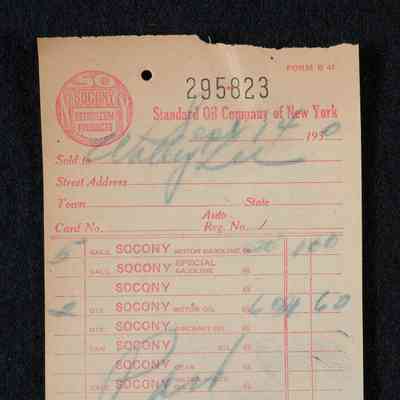 FORM B 41
SOCONY
PETROLEUM
PRODUCTS
295823
Standard Oil Company of New York
Sept 14 1930
Sold to
Street Address
Town State
Card No. Auto Reg. No. 1
5 GALS. SOCONY MOTOR GASOLINE @ 20 1 00
GALS. SOCONY SPECIAL GASOLINE @
SOCONY @
2 QTS. SOCONY MOTOR OIL @ 60
QTS. SOCONY AIRCRAFT OIL @
CAN SOCONY OIL @
SOCONY GEAR @
SOCONY @
Paid